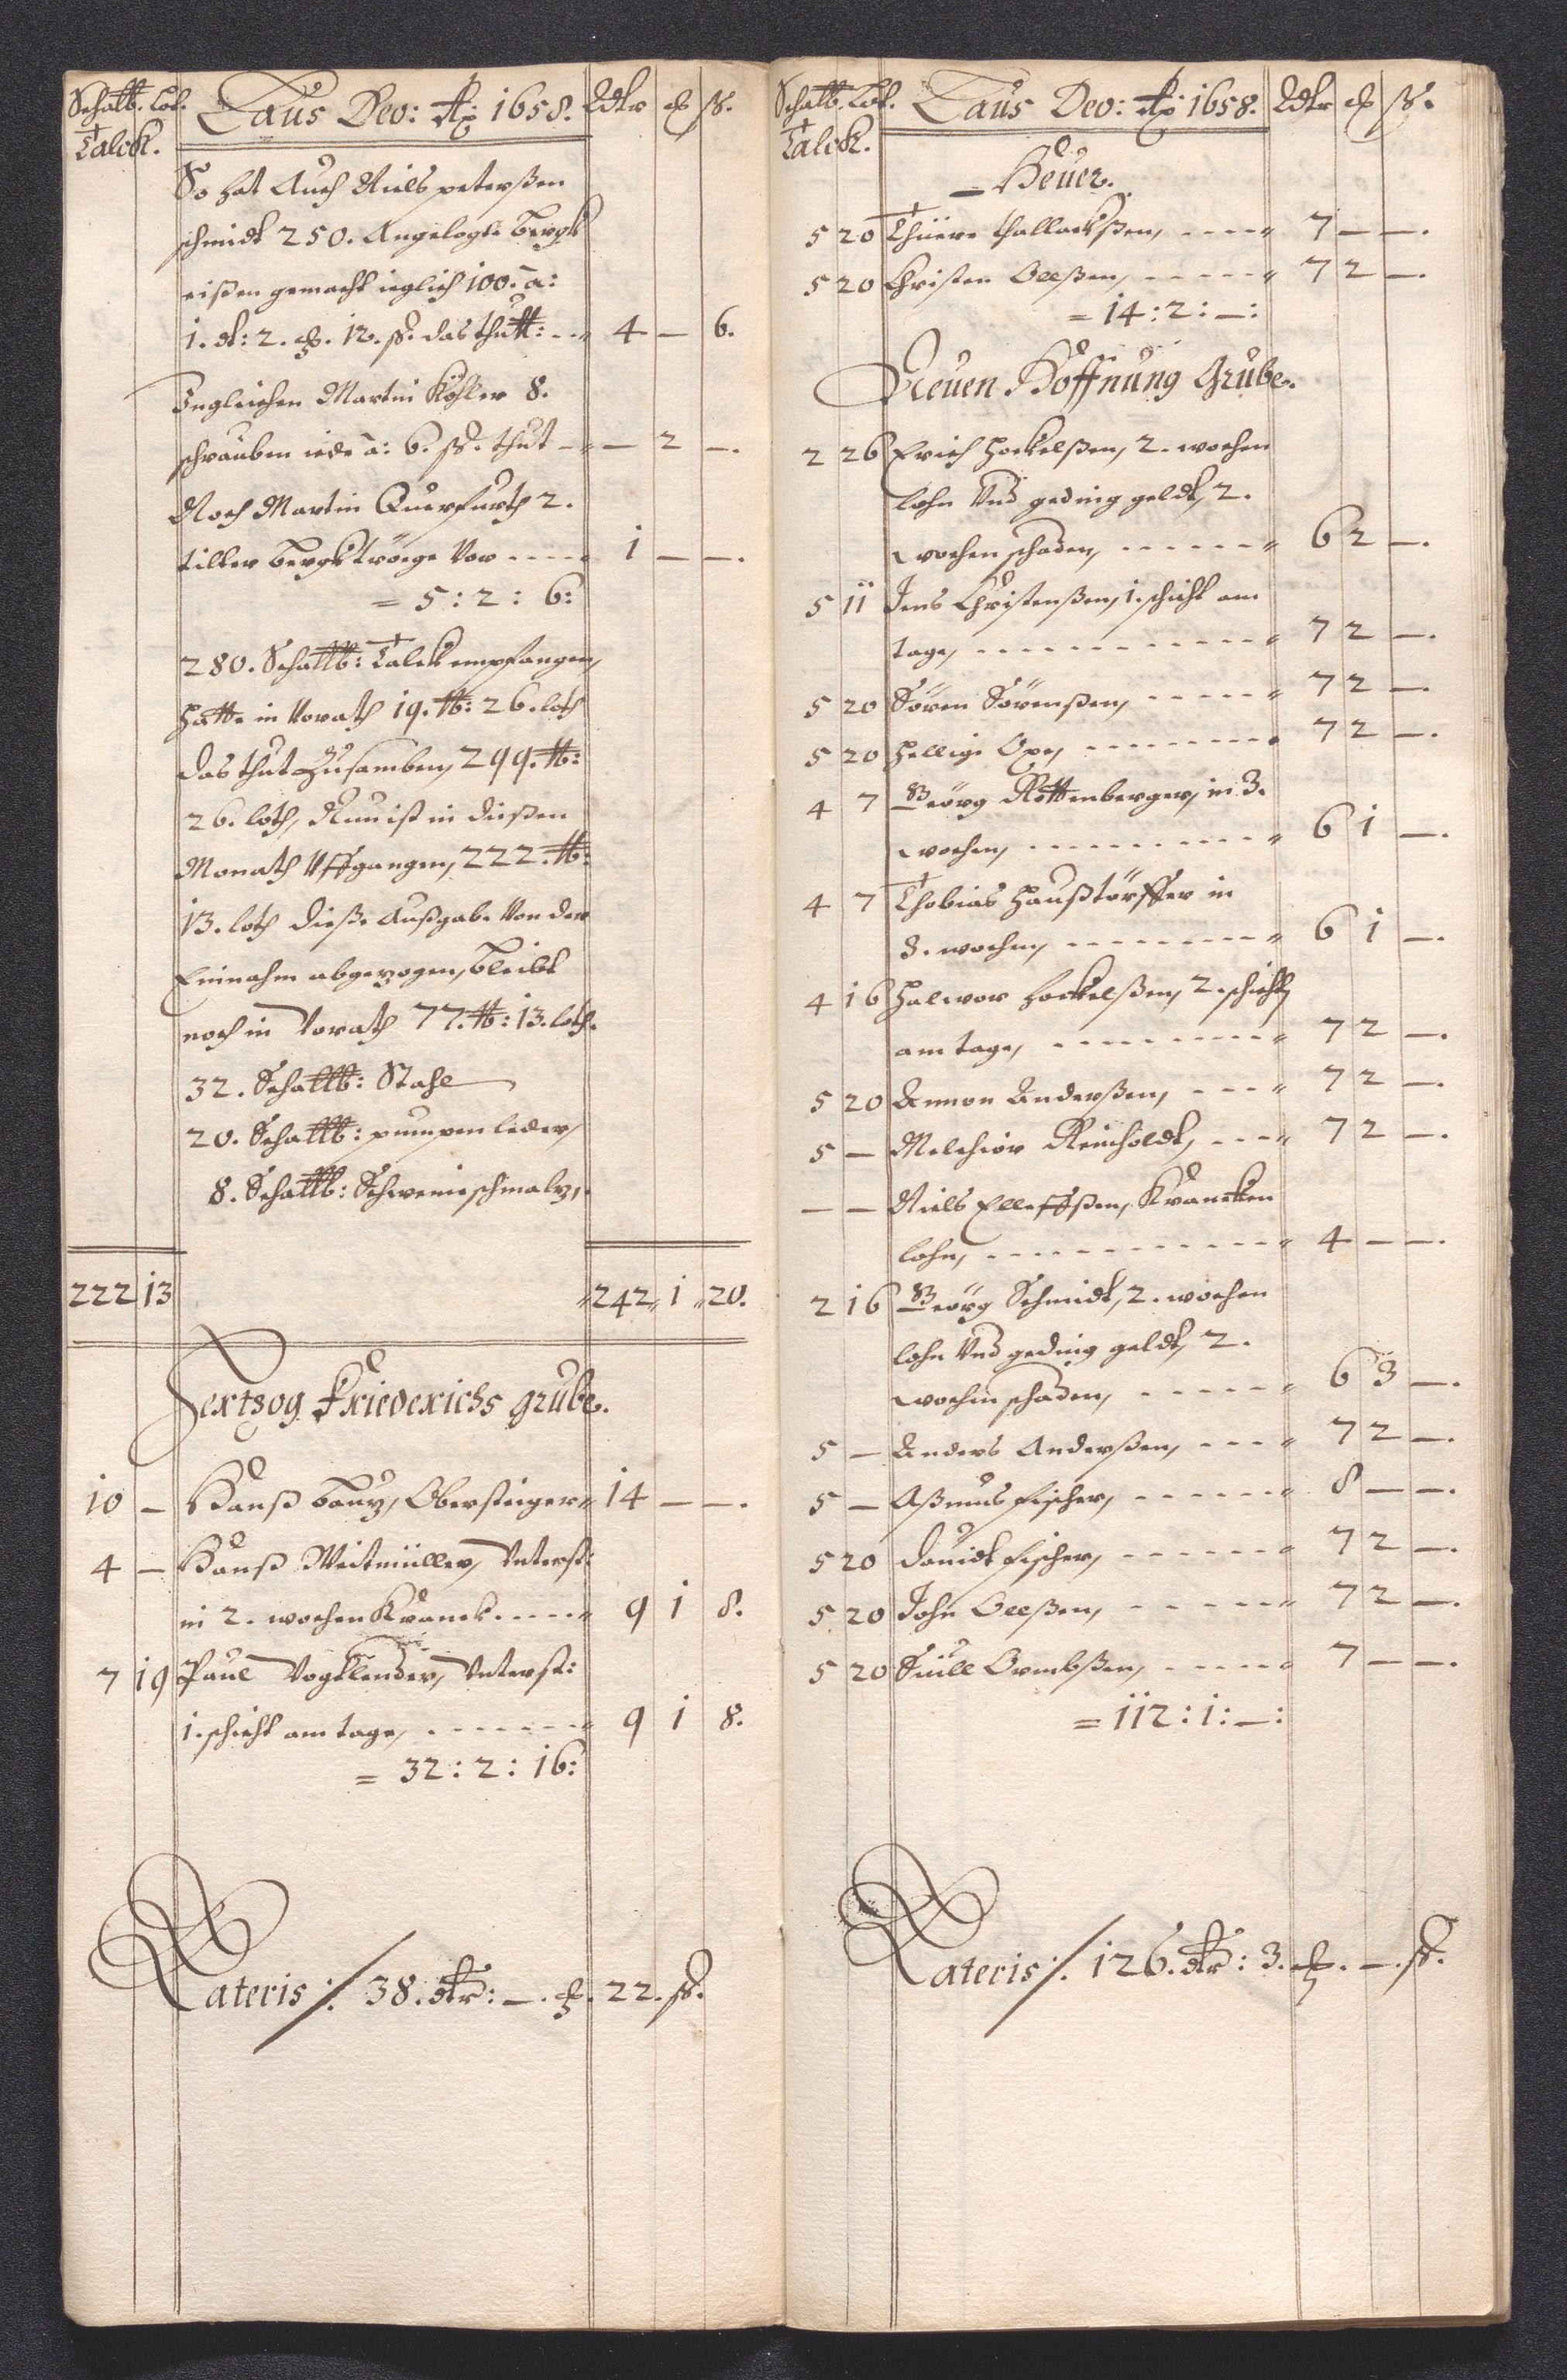 Schalb. Lot. Laus Deo: Ao: 1658. Rdlr ȹ ß.
Talck.
So hat Auch Niels peterßen
schmidt 250. Angelegte bergk
eißen gemacht ieglich 100. à:
1. dl: 2. ȹ. 12. ß. das thutt: 4 — 6.
Ingleichen Martin Köhler 8.
schrauben iede à: 6. ß. thut — 2 —.
Noch Martin Querfurth 2.
tiller bergktröege vor 1 — —.
= 5 : 2 : 6:
280. Schalb: Talck empfangen,
hatte in Vorath 19. lb: 26. loth
das thut Zusamben, 299. lb:
26. loth, Nun ist in dießen
Monath Uffgangen, 222. lb:
13. loth dieße Außgabe Von der
Einnahm abgezogen, bleibt
noch in Vorath 77. lb: 13. loth.
32. Schalb: Stahl
20. Schalb: pumpen leder,
8. Schalb: Schweineschmaltz,
222 13 242 1 20.
Hertzog Friederichs grube.
10 — Hanß barz, Obersteiger 14 — —.
4 — Hanß Weitmüller, Unterst:
in 2. wochen Kranck 9 1 8.
7 19 Paul Vogtlender, Unterst:
1. schicht am tage, 9 1 8.
= 32 : 2 : 16:
Lateris ∕. 38. dlr: —. ȹ. 22. ß.
Schalb. Lot. Laus Deo: Ao: 1658. Rdlr ȹ ß.
Talck.
Heuer.
5 20 Thüere thallackßen, 7 — —.
5 20 Christen Oelßen, 7 2 —.
= 14 : 2 : —:
Neuen Hoffnung Grube.
2 26 Erich Hockelßen, 2. wochen
lohn Und geding geldt, 2.
wochen schaden, 6 2 —.
5 11 Jens Christenßen, 1. schicht am
tage, 7 2 —.
5 20 Sören Sörenßen, 7 2 —.
5 20 Hellige Oxe, 7 2 —.
4 7 Georg Rottenberger, in 3.
wochen, 6 1 —.
4 7 Thobias Haußtörffer in
3. wochen, 6 1 —.
4 16 Halvor Hockelßen, 2. schicht
am tage, 7 2 —.
5 20 Ammon Anderßen, 7 2 —.
5 — Melchior Reinholdt, 7 2 —.
— — Niels Elleffßen, Krancken
lohn, 4 — —.
2 16 Georg Schmidt, 2. wochen
lohn Und geding geldt, 2.
wochen schaden, 6 3 —.
5 — Anders Anderßen, 7 2 —.
5 — Aßmus fischer, 8 — —.
5 20 Davidt fischer, 7 2 —.
5 20 John Oelßen, 7 2 —.
5 20 Siull Ormbßen, 7 — —.
= 112 : 1 : —:
Lateris ∕. 126. dlr: 3. ȹ. —. ß.